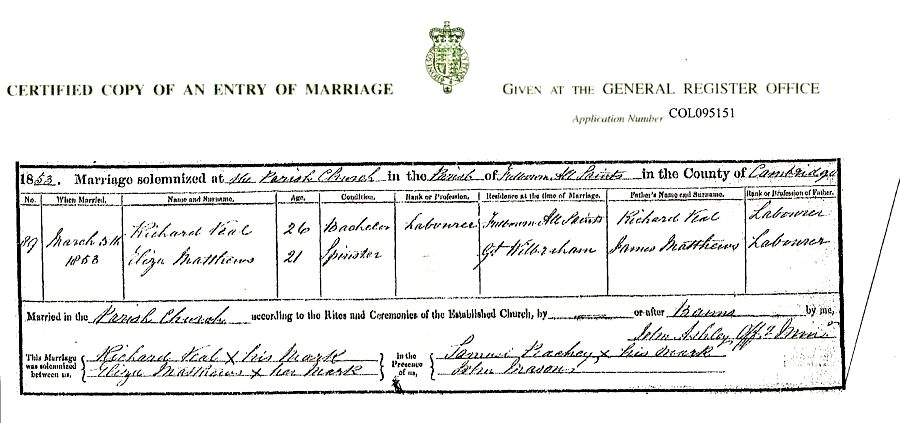 CERTIFIED COPY OF AN ENTRY OF MARRIAGE
GIVEN AT THE GENERAL REGISTER OFFICE
Application Number COL095151
1853. Marriage solemnized at the Parish Church in the Parish of Fulbourn All Saints in the County of Cambridge
No. When Married. Name and Surname. Age. Condition. Rank or Profession. Residence at the time of Marriage. Father's Name and Surname. Rank or Profession of Father.
89 March 5th 1853 Richard Veal 26 Bachelor Labourer Fulbourn All Saints Richard Veal Labourer
Eliza Matthews 21 Spinster Gt Wilbraham James Matthews Labourer
Married in the Parish Church according to the Rites and Ceremonies of the Established Church, by or after Banns by me,
John Ashley Offg Minr
This Marriage was solemnized between us, Richard Veal x his Mark
Eliza Matthews x her Mark
in the Presence of us, Samuel x his mark
John Mason